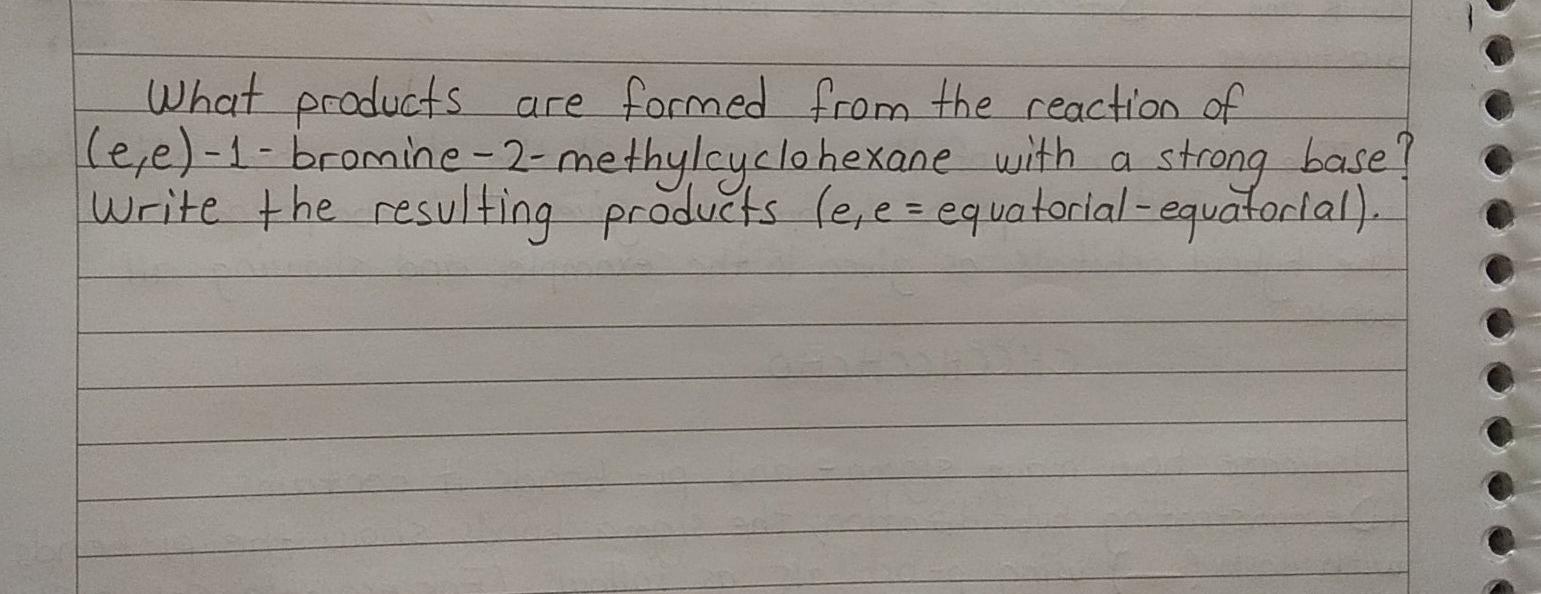 What products are formed from the reaction of
(e,e)-1-bromine-2-methylcyclohexane with a strong base?
Write the resulting products (e,e = equatorial-equatorial).